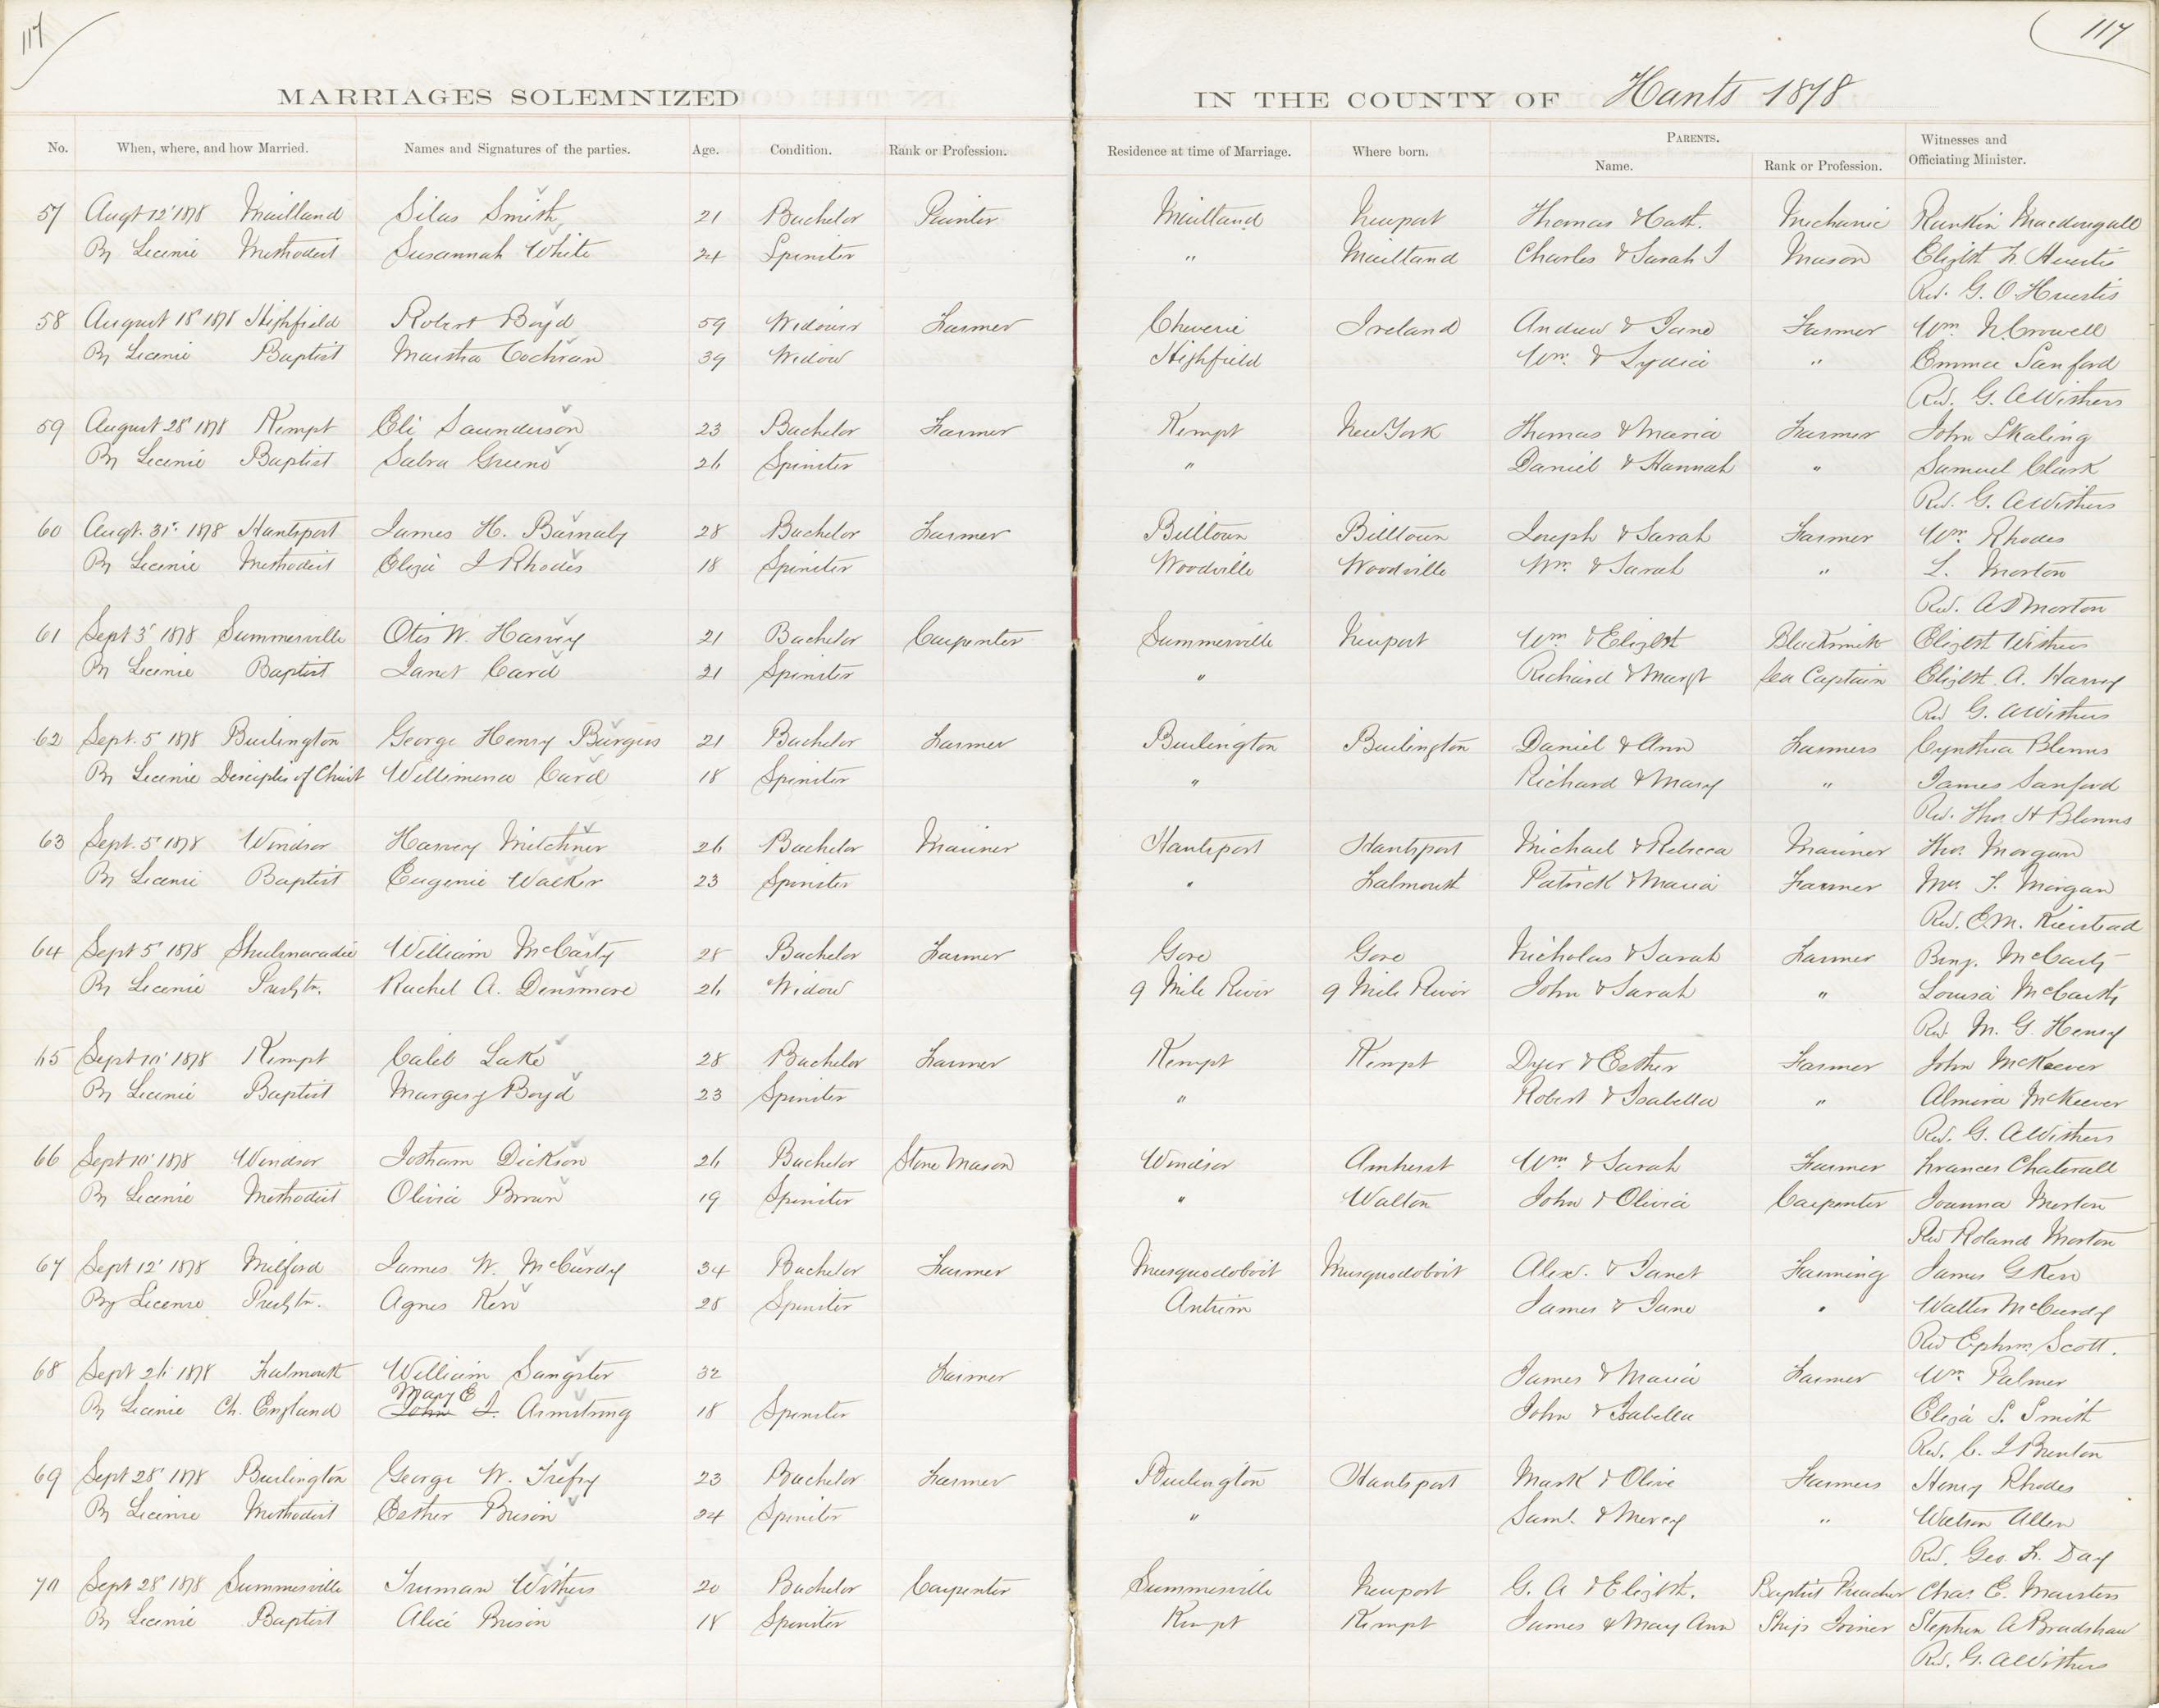 117
117
MARRIAGES SOLEMNIZED IN THE COUNTY OF Hants 1878
No. When, where, and how Married. Names and Signatures of the parties. Age. Condition. Rank or Profession. Residence at time of Marriage. Where born. PARENTS. Name. Rank or Profession. Witnesses and Officiating Minister.
57 Augt 12' 1878 Maitland Silas Smith 21 Bachelor Painter Maitland Newport Thomas & Cath. Mechanic Rankin Macdougall
By License Methodist Susannah White 24 Spinster " Maitland Charles & Sarah J Mason Elizbt h Huestis
Rev. G. O Huestis
58 August 18' 1878 Highfield Robert Boyd 59 Widower Farmer Cheverie Ireland Andrew & Jane Farmer Wm. N. Crowell
By License Baptist Martha Cochran 39 Widow Highfield Wm. & Lydia " Emma Sanford
Rev. G. A Withers
59 August 28' 1878 Kempt Eli Saunderson 23 Bachelor Farmer Kempt New York Thomas & Maria Farmer John Skaling
By License Baptist Sabra Greeno 26 Spinster " Daniel & Hannah " Samuel Clark
Rev. G. A Withers
60 Augt. 31st 1878 Hantsport James H. Barnaby 28 Bachelor Farmer Billtown Billtown Joseph & Sarah Farmer Wm. Rhodes
By License Methodist Eliza J Rhodes 18 Spinster Woodville Woodville Wm. & Sarah " L. Morton
Rev. A D Morton
61 Sept 3' 1878 Summerville Otis W. Harvey 21 Bachelor Carpenter Summerville Newport Wm & Elizbt Blacksmith Elizbt Withers
By License Baptist Janet Card 21 Spinster " Richard & Margt Sea Captain Elizbt. A. Harvey
Rev G. A Withers
62 Sept. 5 1878 Burlington George Henry Burgess 21 Bachelor Farmer Burlington Burlington Daniel & Ann Farmers Cynthia Blenus
By License Desciples of Christ Willimena Card 18 Spinster " Richard & Mary " James Sanford
Rev. Thos H Blenus
63 Sept. 5' 1878 Windsor Harvey Mitchner 26 Bachelor Mariner Hantsport Hantsport Michael & Rebecca Mariner Thos. Morgan
By License Baptist Eugenie Walker 23 Spinster " Falmouth Patrick & Maria Farmer Mrs T. Morgan
Rev. E. M. Kierstead
64 Sept 5' 1878 Shubenacadie William McCarty 28 Bachelor Farmer Gore Gore Nicholas & Sarah Farmer Benj. McCarty
By License Presbtn. Rachel A. Densmore 26 Widow 9 Mile River 9 Mile River John & Sarah " Louisa McCarthy
Rev M. G. Henry
65 Sept 10' 1878 Kempt Caleb Lake 28 Bachelor Farmer Kempt Kempt Dyer & Esther Farmer John McKeever
By License Baptist Margery Boyd 23 Spinster " Robert & Isabella " Almira McKeever
Rev. G. A Withers
66 Sept 10' 1878 Windsor Jotham Dickson 26 Bachelor Stone Mason Windsor Amherst Wm & Sarah Farmer Frances Chaterall
By License Methodist Olivia Brown 19 Spinster " Walton John & Olivia Carpenter Joanna Morton
Rev Roland Morton
67 Sept 12' 1878 Milford James W. McCurdy 34 Bachelor Farmer Musquodoboit Musquodoboit Alexr. & Janet Farming James G Kerr
By License Presbtn. Agnes Kerr 28 Spinster Antrim James & Jane " Walter McCurdy
Rev Ephrm Scott.
68 Sept 26 1878 Falmouth William Sangster 32 Farmer James & Maria Farmer Wm Palmer
Mary E
By License Ch. England John J. Armstrong 18 Spinster John & Isabella Eliza S. Smith
Rev. C. J Brenton
69 Sept 28' 1878 Burlington George W. Trefry 23 Bachelor Farmer Burlington Hantsport Mark & Olive Farmers Henry Rhodes
By License Methodist Esther Brison 24 Spinster " Saml. & Mercy " Watson Allen
Rev. Geo. F. Day
70 Sept 28' 1878 Summerville Truman Withers 20 Bachelor Carpenter Summerville Newport G. A & Elizbt. Baptist Preacher Chas. E. Marsters
By License Baptist Alice Brison 18 Spinster Kempt Kempt James & Mary Ann Ship Joiner Stephen A Bradshaw
Rev. G. A Withers